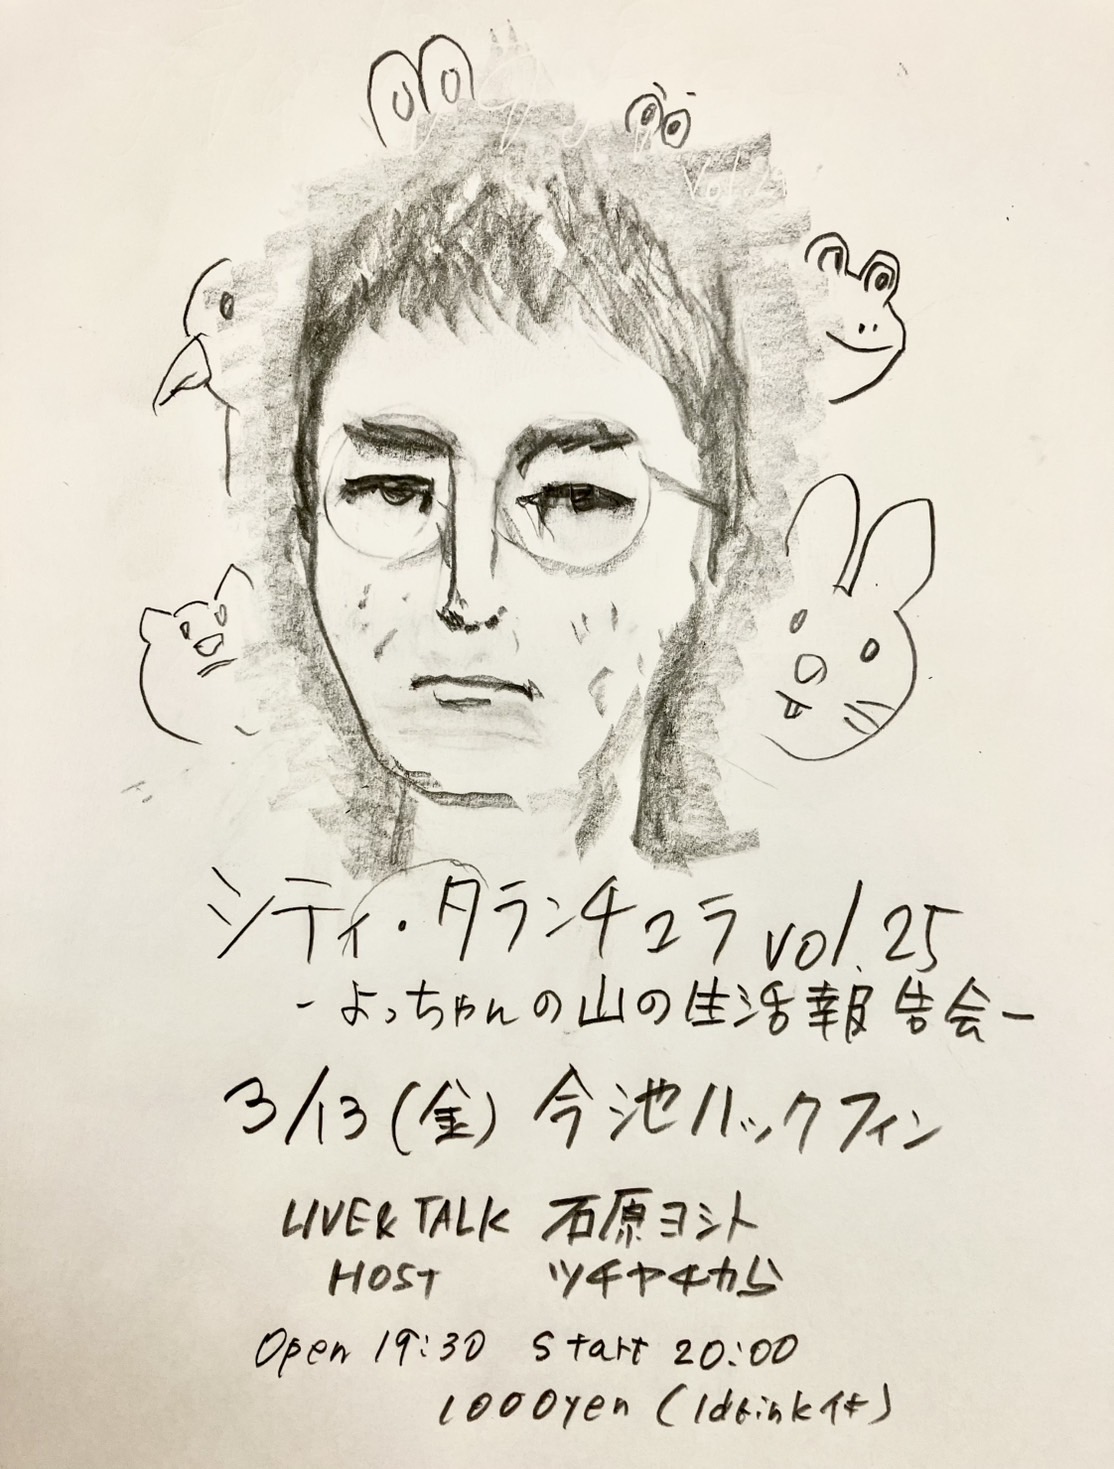 シティ・タランチュラ vol.25
-よっちゃんの山の生活報告会-
3/13(金) 今池ハックフィン
LIVE&TALK 石原ヨシト
HOST ツチヤチカら
Open 19:30 Start 20:00
1000yen (1drink付)